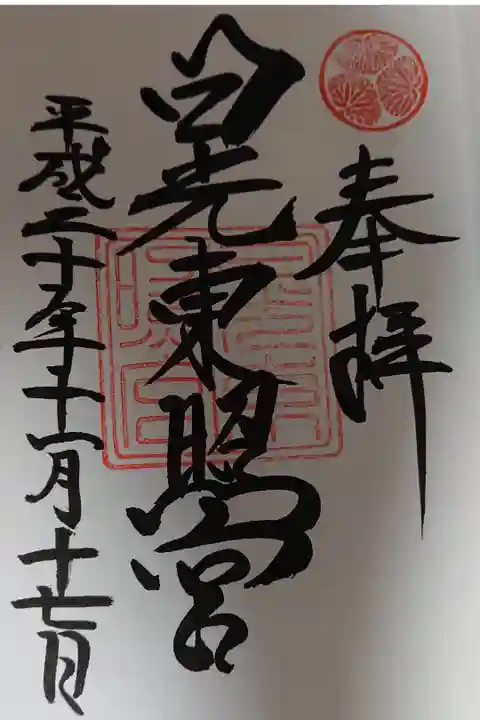 奉拝
日光東照宮
平成二十年十一月十七日